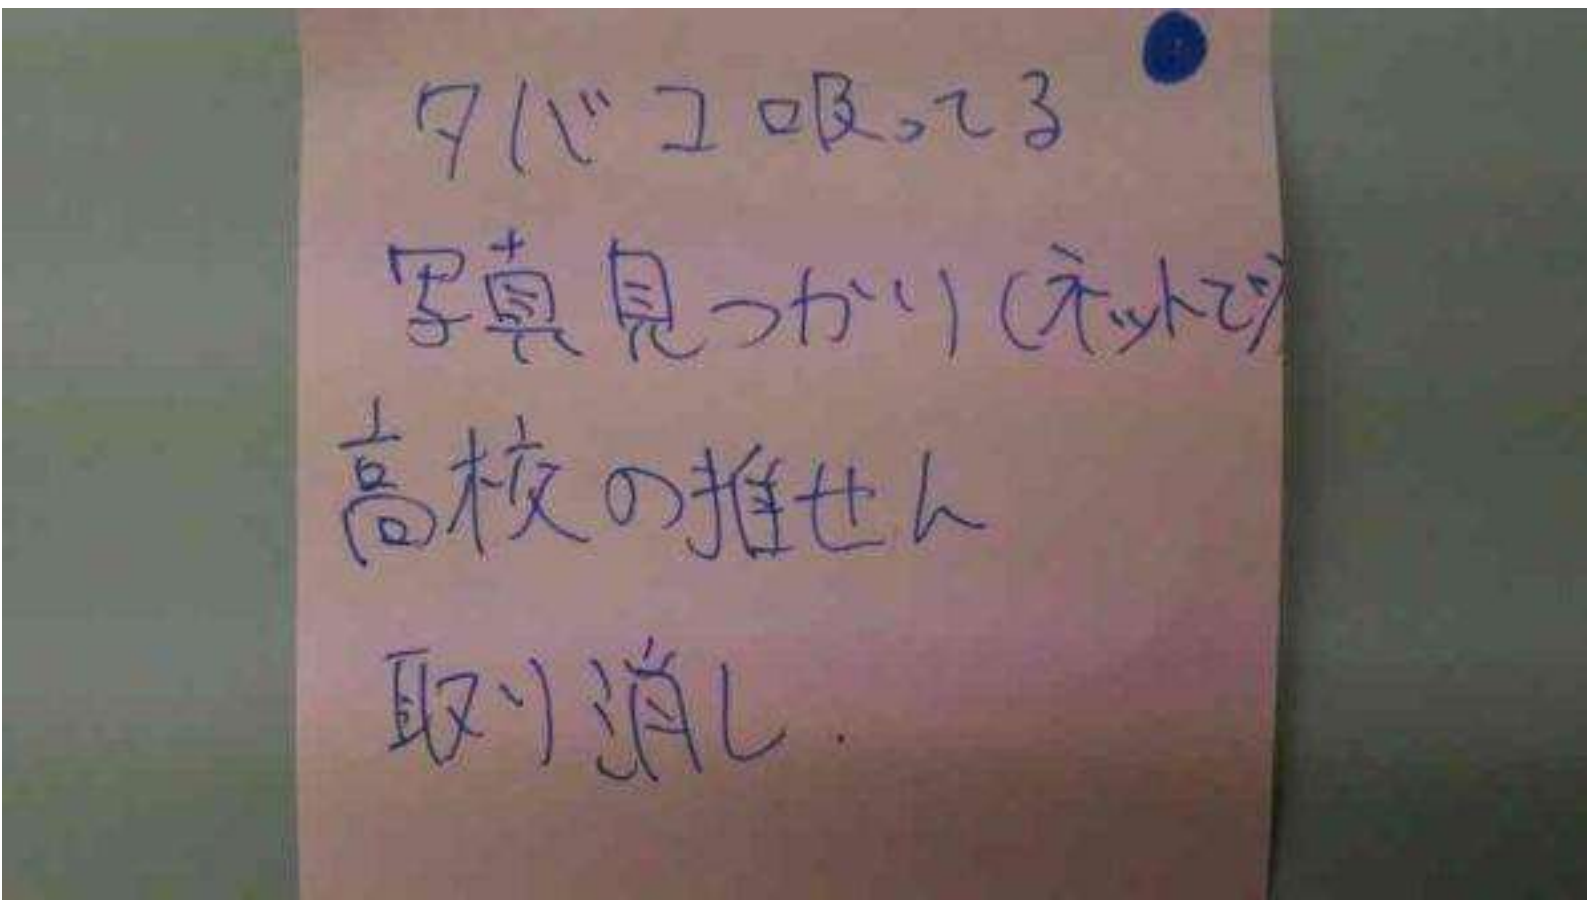 タバコ吸ってる
写真見つかり(ネットで)
高校の推せん
取り消し.